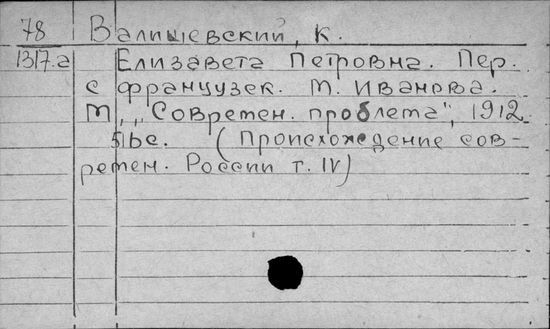 78 Валишевский, К.
1317.а Елизавета Петровна. Пер.
с французск. М. Иванова.
М., „Современ. проблема", 1912
516с. (Происхождение сов-
ремен. России т. IV)